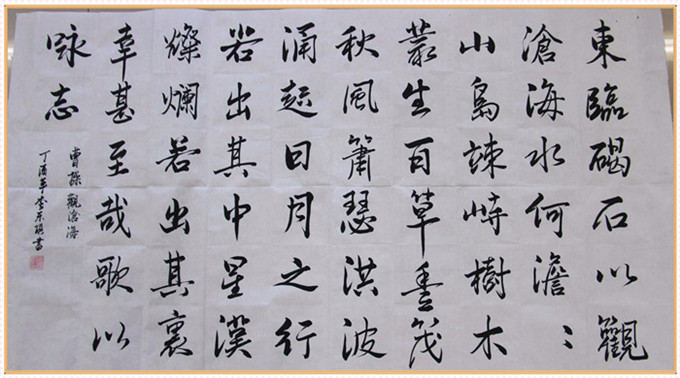 東臨碣石以觀
滄海水何澹〻
山島竦峙樹木
叢生百草豊茂
秋風蕭瑟洪波
涌起日月之行
若出其中星漢
燦爛若出其裏
幸甚至哉歌以
咏志
曹操觀滄海
丁酉年書